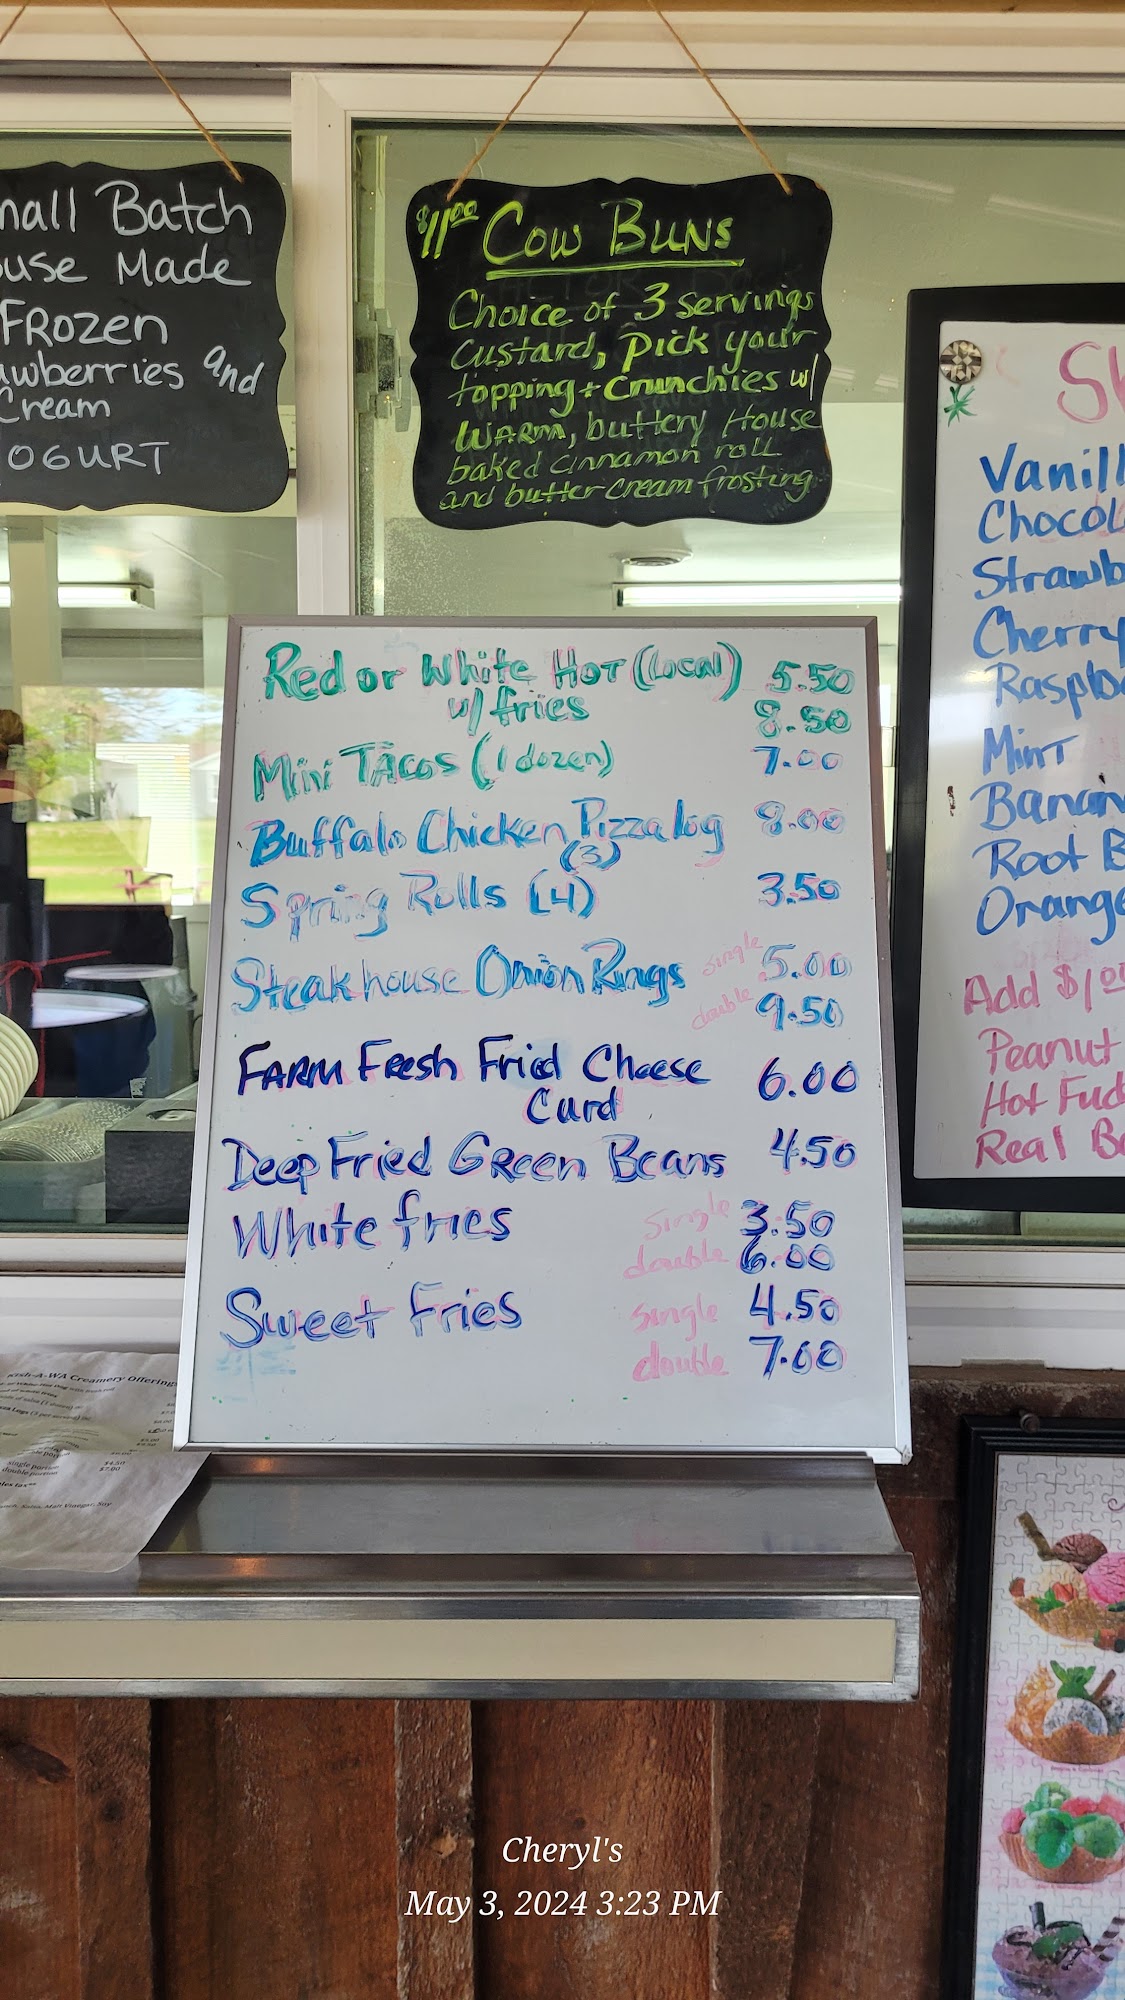 mall Batch
ouse Made
Frozen
awberries and
Cream
OGURT
$11.00 Cow Buns
Choice of 3 servings
Custard, pick your
topping + crunchies w/
WARM, buttery House
baked cinnamon roll
and butter cream frosting
Red or White Hot (Local) 5.50
w/ fries 8.50
Mini Tacos (1 dozen) 7.00
Buffalo Chicken Pizza log 8.00
(3)
Spring Rolls (4) 3.50
Steakhouse Onion Rings single 5.00
double 9.50
FARM Fresh Fried Cheese 6.00
Curd
Deep Fried Green Beans 4.50
White fries single 3.50
double 6.00
Sweet Fries single 4.50
double 7.00
Vanill
Chocol
Strawb
Cherry
Raspb
Mint
Banan
Root B
Orange
Add $1.0
Peanut
Hot Fud
Real B
Kish-A-WA Creamery Offering
single portion $4.50
double portion $7.00
Malt Vinegar, Soy
Cheryl's
May 3, 2024 3:23 PM